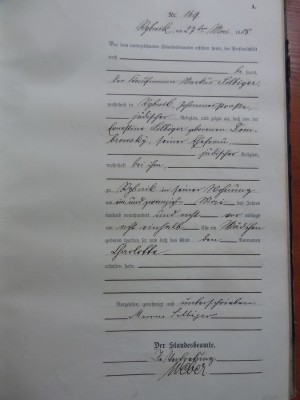 Nr. 169
Rybnik, am 27ten Mai 1908
Vor dem unterzeichneten Standesbeamten erschien heute, der Persönlichkeit
nach
be kannt,
der Kaufmann
wohnhaft in Rybnik,
jüdischer Religion, und zeigte an, daß von der
Ernestine geborenen Dom-
browski, seiner Ehefrau
jüdischer Religion,
wohnhaft bei ihm
zu Rybnik in seiner Wohnung
am ein und zwanzigsten Mai des Jahres
tausend neunhundert und acht vor mittags
um acht einhalb Uhr ein Mädchen
geboren worden sei und daß das Kind den Vornamen
Charlotte
erhalten habe
Vorgelesen, genehmigt und unterschrieben
Der Standesbeamte.
In Vertretung
Weber